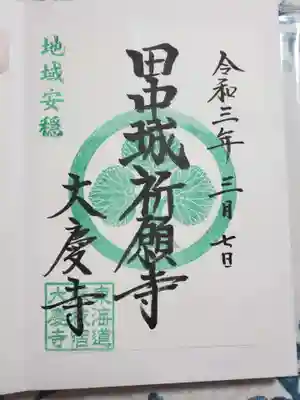 令和三年三月七日
田中城祈願寺
地域安穏
大慶寺
東海道
藤枝宿
大慶寺